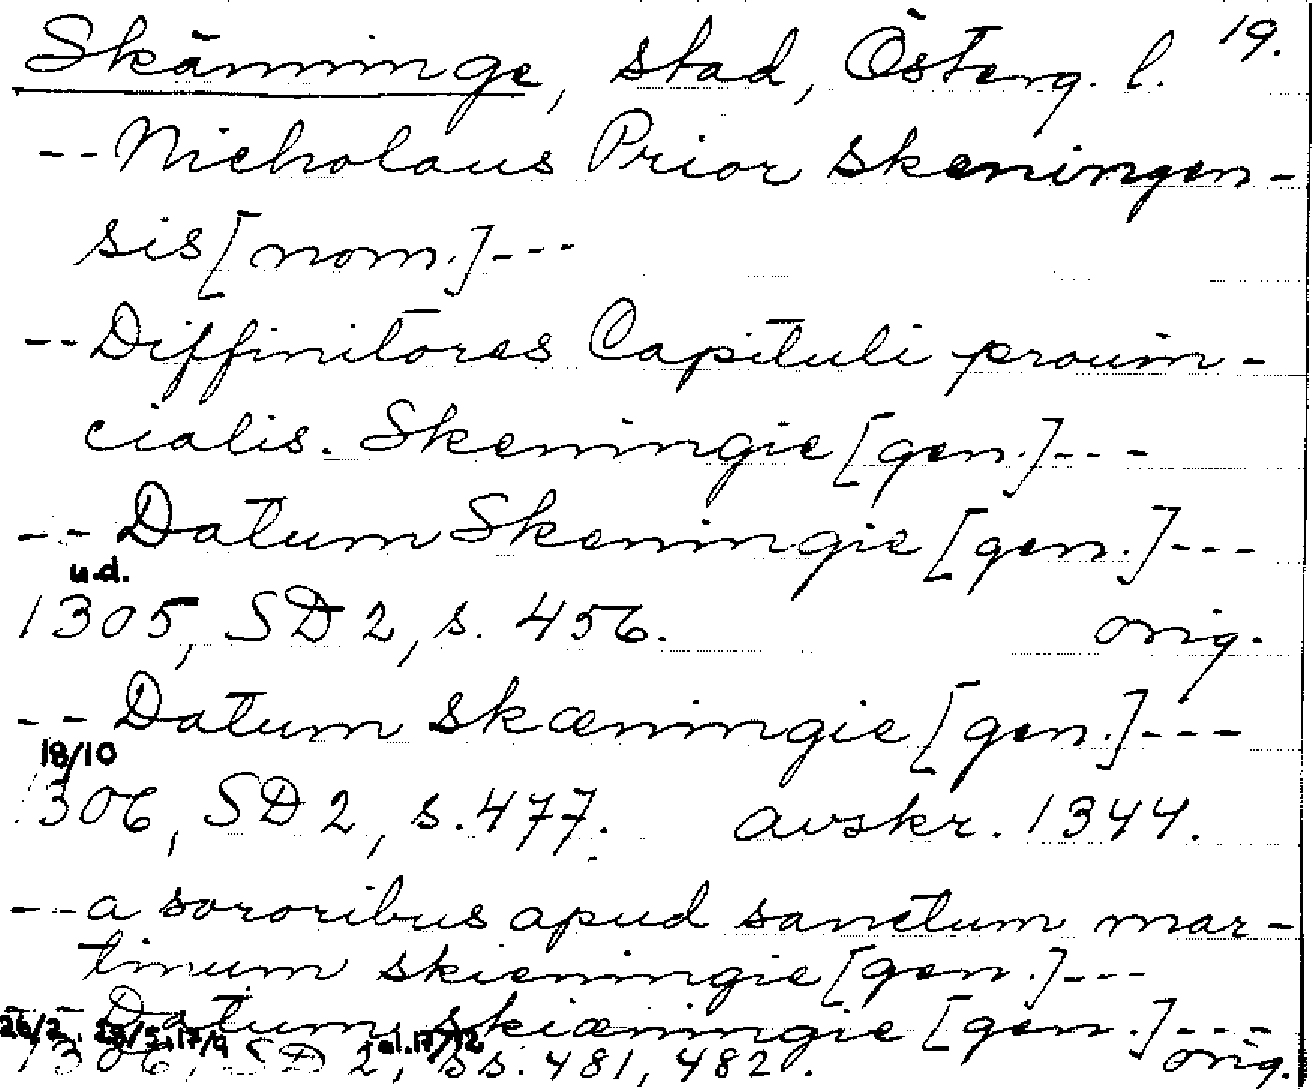 Skänninge, stad, Österg. l. 19.
--Nicholaus Prior skeningen-
sis [nom.]---
--Diffinitores Capituli prouin-
cialis. Skeningie [gen.]---
-- Datum Skeningie [gen.]---
u.d.
1305, SD 2, s. 456. orig.
-- Datum skæningie [gen.]---
18/10
1306, SD 2, s. 477. avskr. 1344.
--a sororibus apud sanctum mar-
tinum skieningie [gen.]---
-- Datum skiæningie [gen.]---
1306, SD 2, ss. 481, 482. orig.